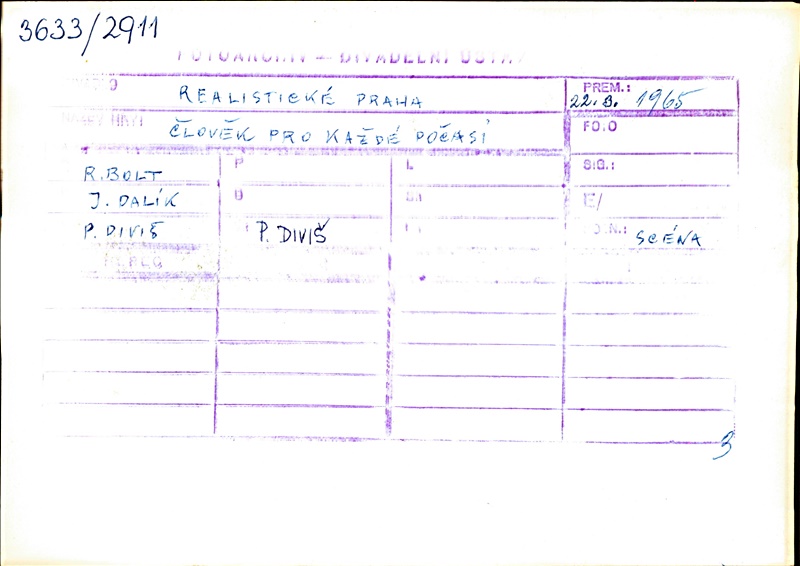 3633/2911
FOTOARCHIV — DIVADELNÍ ÚSTAV
REALISTICKÉ PRAHA
PREM.:
22. 3. 1965
NÁZEV HRY
ČLOVĚK PRO KAŽDÉ POČASÍ
FO.O
R. BOLT
P
L
SIG.:
J. DALÍK
U
E/
P. DIVIŠ
P. DIVIŠ
SCÉNA
3